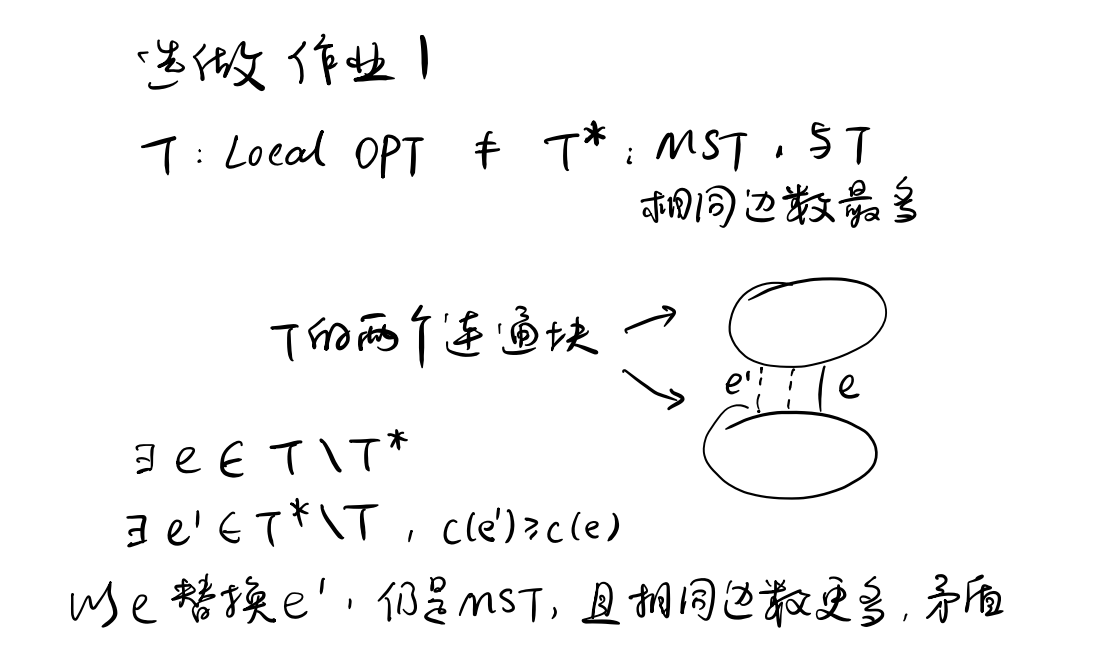 选做作业1
T: Local OPT ≠ T*: MST, 与T
相同边数最多
T的两个连通块
e' e
∃ e ∈ T \ T*
∃ e' ∈ T* \ T, c(e') ≥ c(e)
以e替换e', 仍是MST, 且相同边数更多, 矛盾